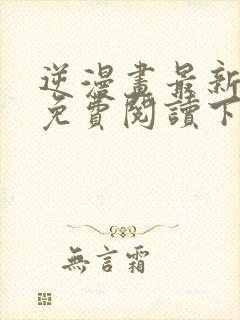 逆漫畫最新
免費閱讀下
無言霜